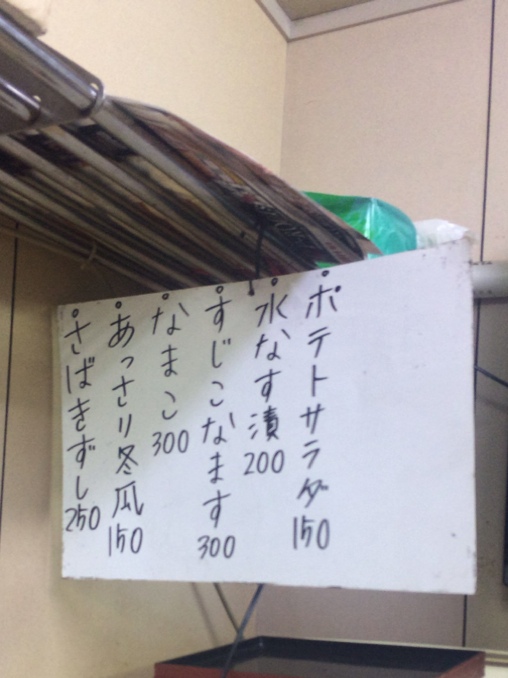 ポテトサラダ 150
水なす漬 200
すじこなます 300
なまこ 300
あっさり冬瓜 150
さばきずし 250